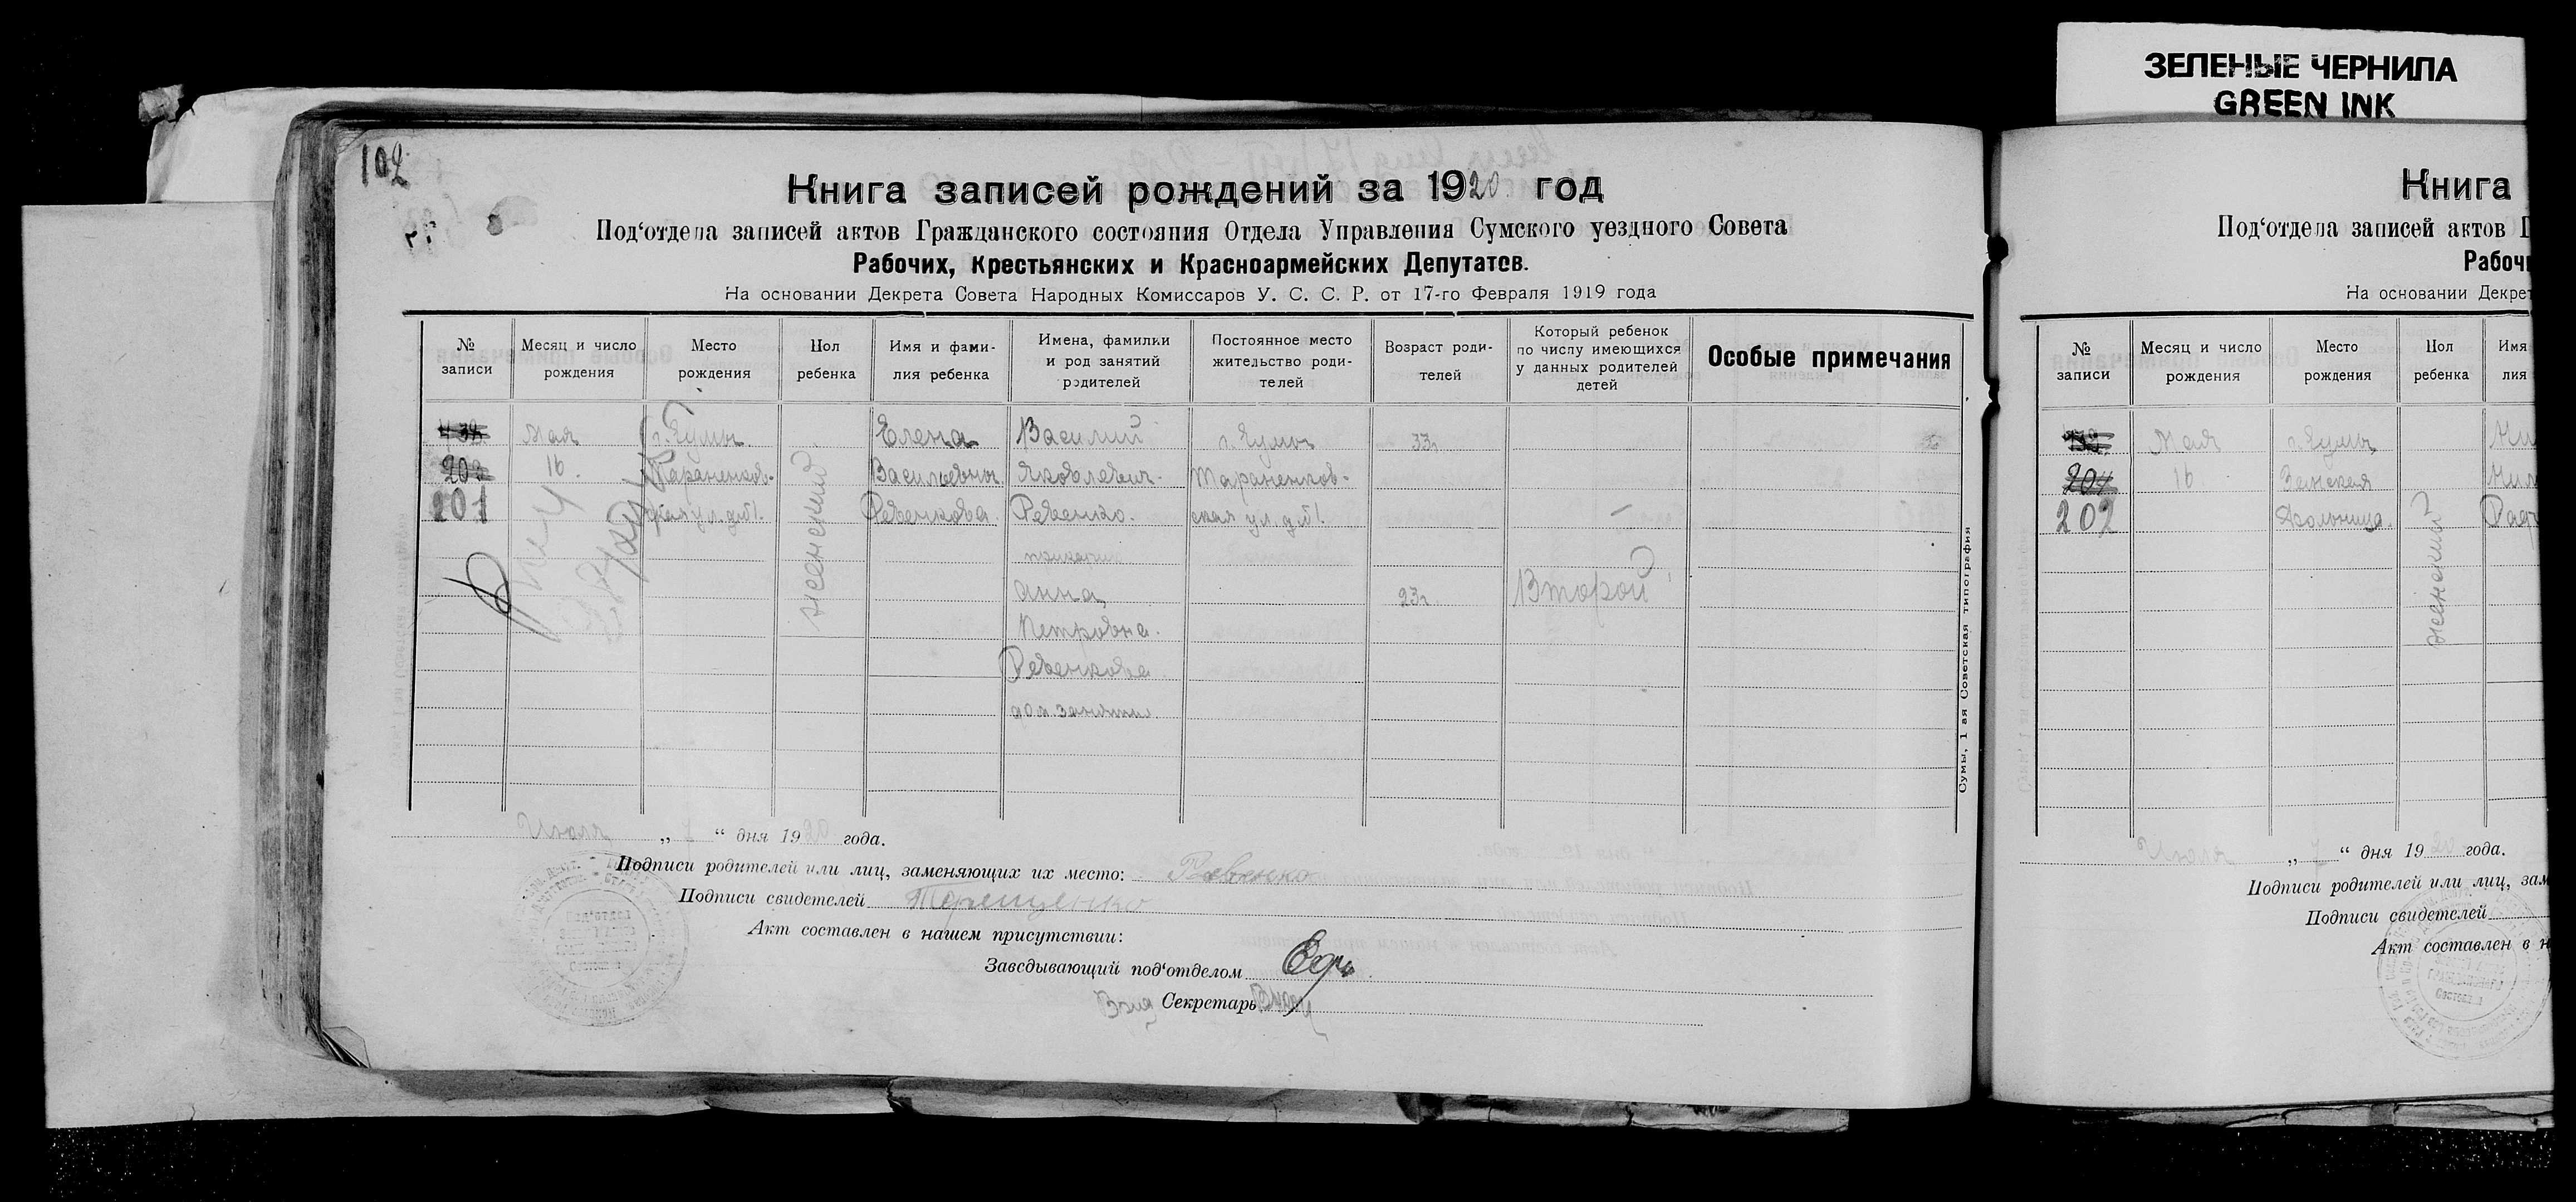 ЗЕЛЕНЫЕ ЧЕРНИЛА
GREEN INK
102
Книга записей рождений за 1920 год
Под‘отдела записей актов Гражданского состояния Отдела Управления Сумского уездного Совета
Рабочих, Крестьянских и Красноармейских Депутатов.
На основании Декрета Совета Народных Комиссаров У. С. С. Р. от 17-го Февраля 1919 года
№ записи
Месяц и число рождения
Место рождения
Пол ребенка
Имя и фами-
лия ребенка
Имена, фамилии
и род занятий
родителей
Постоянное место
жительство роди-
телей
Возраст роди-
телей
Который ребенок
по числу имеющихся
у данных родителей
детей
Особые примечания
201
Мая
16.
г. Сумы
Тараненков-
ская ул. д №1.
женский
Елена
Васильевна
Ревенкова
Василий
Яковлевич
Ревенко.
Анна
Петровна
Ревенкова
дом. занятия
г. Сумы
Тараненков-
ская ул. д №1.
33г
23г
Второй
Сумы, 1 ая Советская типография
Июля „ 7 “ дня 1920 года.
Подписи родителей или лиц, заменяющих их место: Ревенко
Подписи свидетелей Терещенко
Акт составлен в нашем присутствии:
Заведывающий под‘отделом
Секретарь
Книга
Под‘отдела записей актов Г
Рабочи
На основании Декрет
№ записи
Месяц и число рождения
Место рождения
Пол ребенка
Имя
лия
202
Мая
16
г. Сумы
Земская
больница.
женский
Июля „ 7 “ дня 1920 года.
Подписи родителей или лиц, зам
Подписи свидетелей
Акт составлен в н